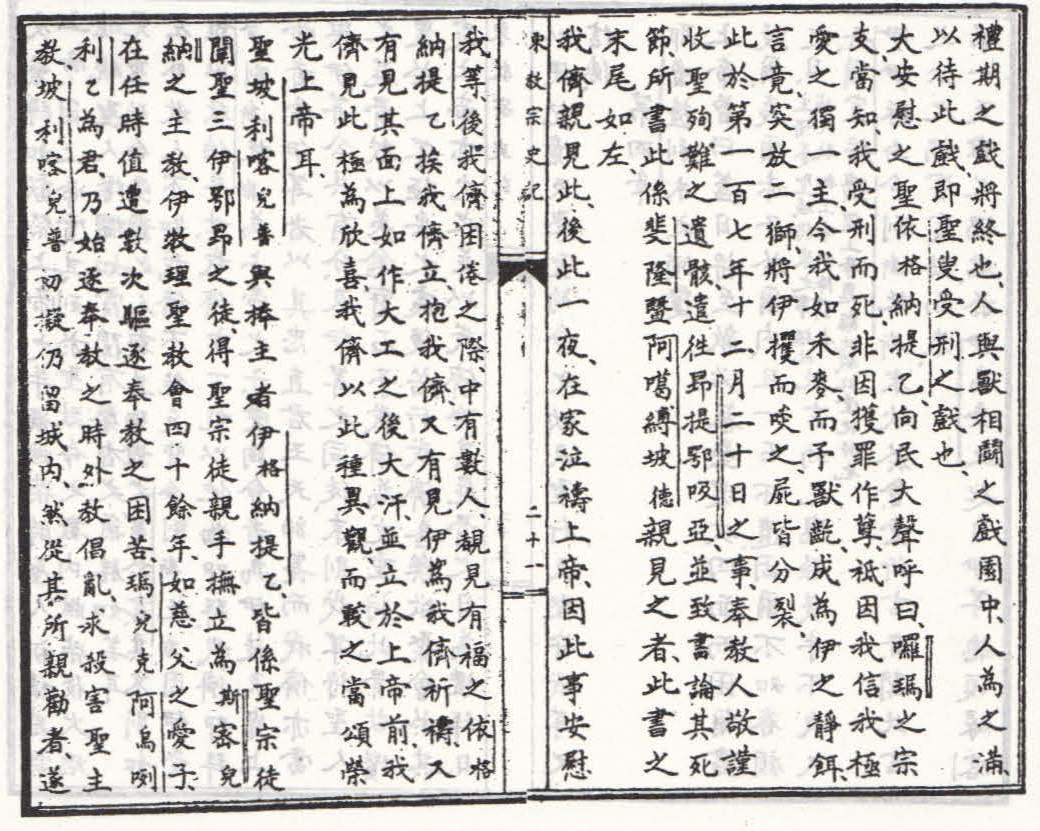 禮期之戲將終也、人與獸相鬪之戲園中、人為之滿、
以待此戲、即聖叟受刑之戲也、
大安慰之聖依格納提乙、向民大聲呼曰、囉瑪之宗
支、當知、我受刑而死、非因獲罪作孽、祇因我信我極
愛之獨一主、今我如禾麥、而予獸齕、成為伊之靜餌、
言竟、突放二獅、將伊攫而啖之、屍皆分裂、
此於第一百七年十二月二十日之事、奉教人敬謹
收聖殉難之遺骸、遣徃昻提鄂吸亞、並致書論其死
節、所書此係斐隆暨阿噶縛坡德親見之者、此書之
末尾如左、
我儕親見此、後此一夜、在家泣禱上帝、因此事安慰
東教宗史記
二十一
我等、後我儕困倦之際、中有數人、覩見有福之依格
納提乙、挨我儕立、抱我儕、又有見伊為我儕祈禱、又
有見其面上如作大工之後大汗、並立於上帝前、我
儕見此、極為欣喜、我儕以此種異觀而較之、當頌榮
光上帝耳、
聖坡利喀兒普與捧主者伊格納提乙、皆係聖宗徒
闡聖三伊鄂昻之徒、得聖宗徒親手撫立為斯密兒
納之主教、伊牧理聖教會四十餘年、如慈父之愛子、
在任時值遭數次驅逐奉教之困苦、瑪兒克阿烏唎
利乙為君、乃始逐奉教之時、外教倡亂、求殺害聖主
教、坡利喀兒普初擬仍留城內、然從其所親勸者、遂